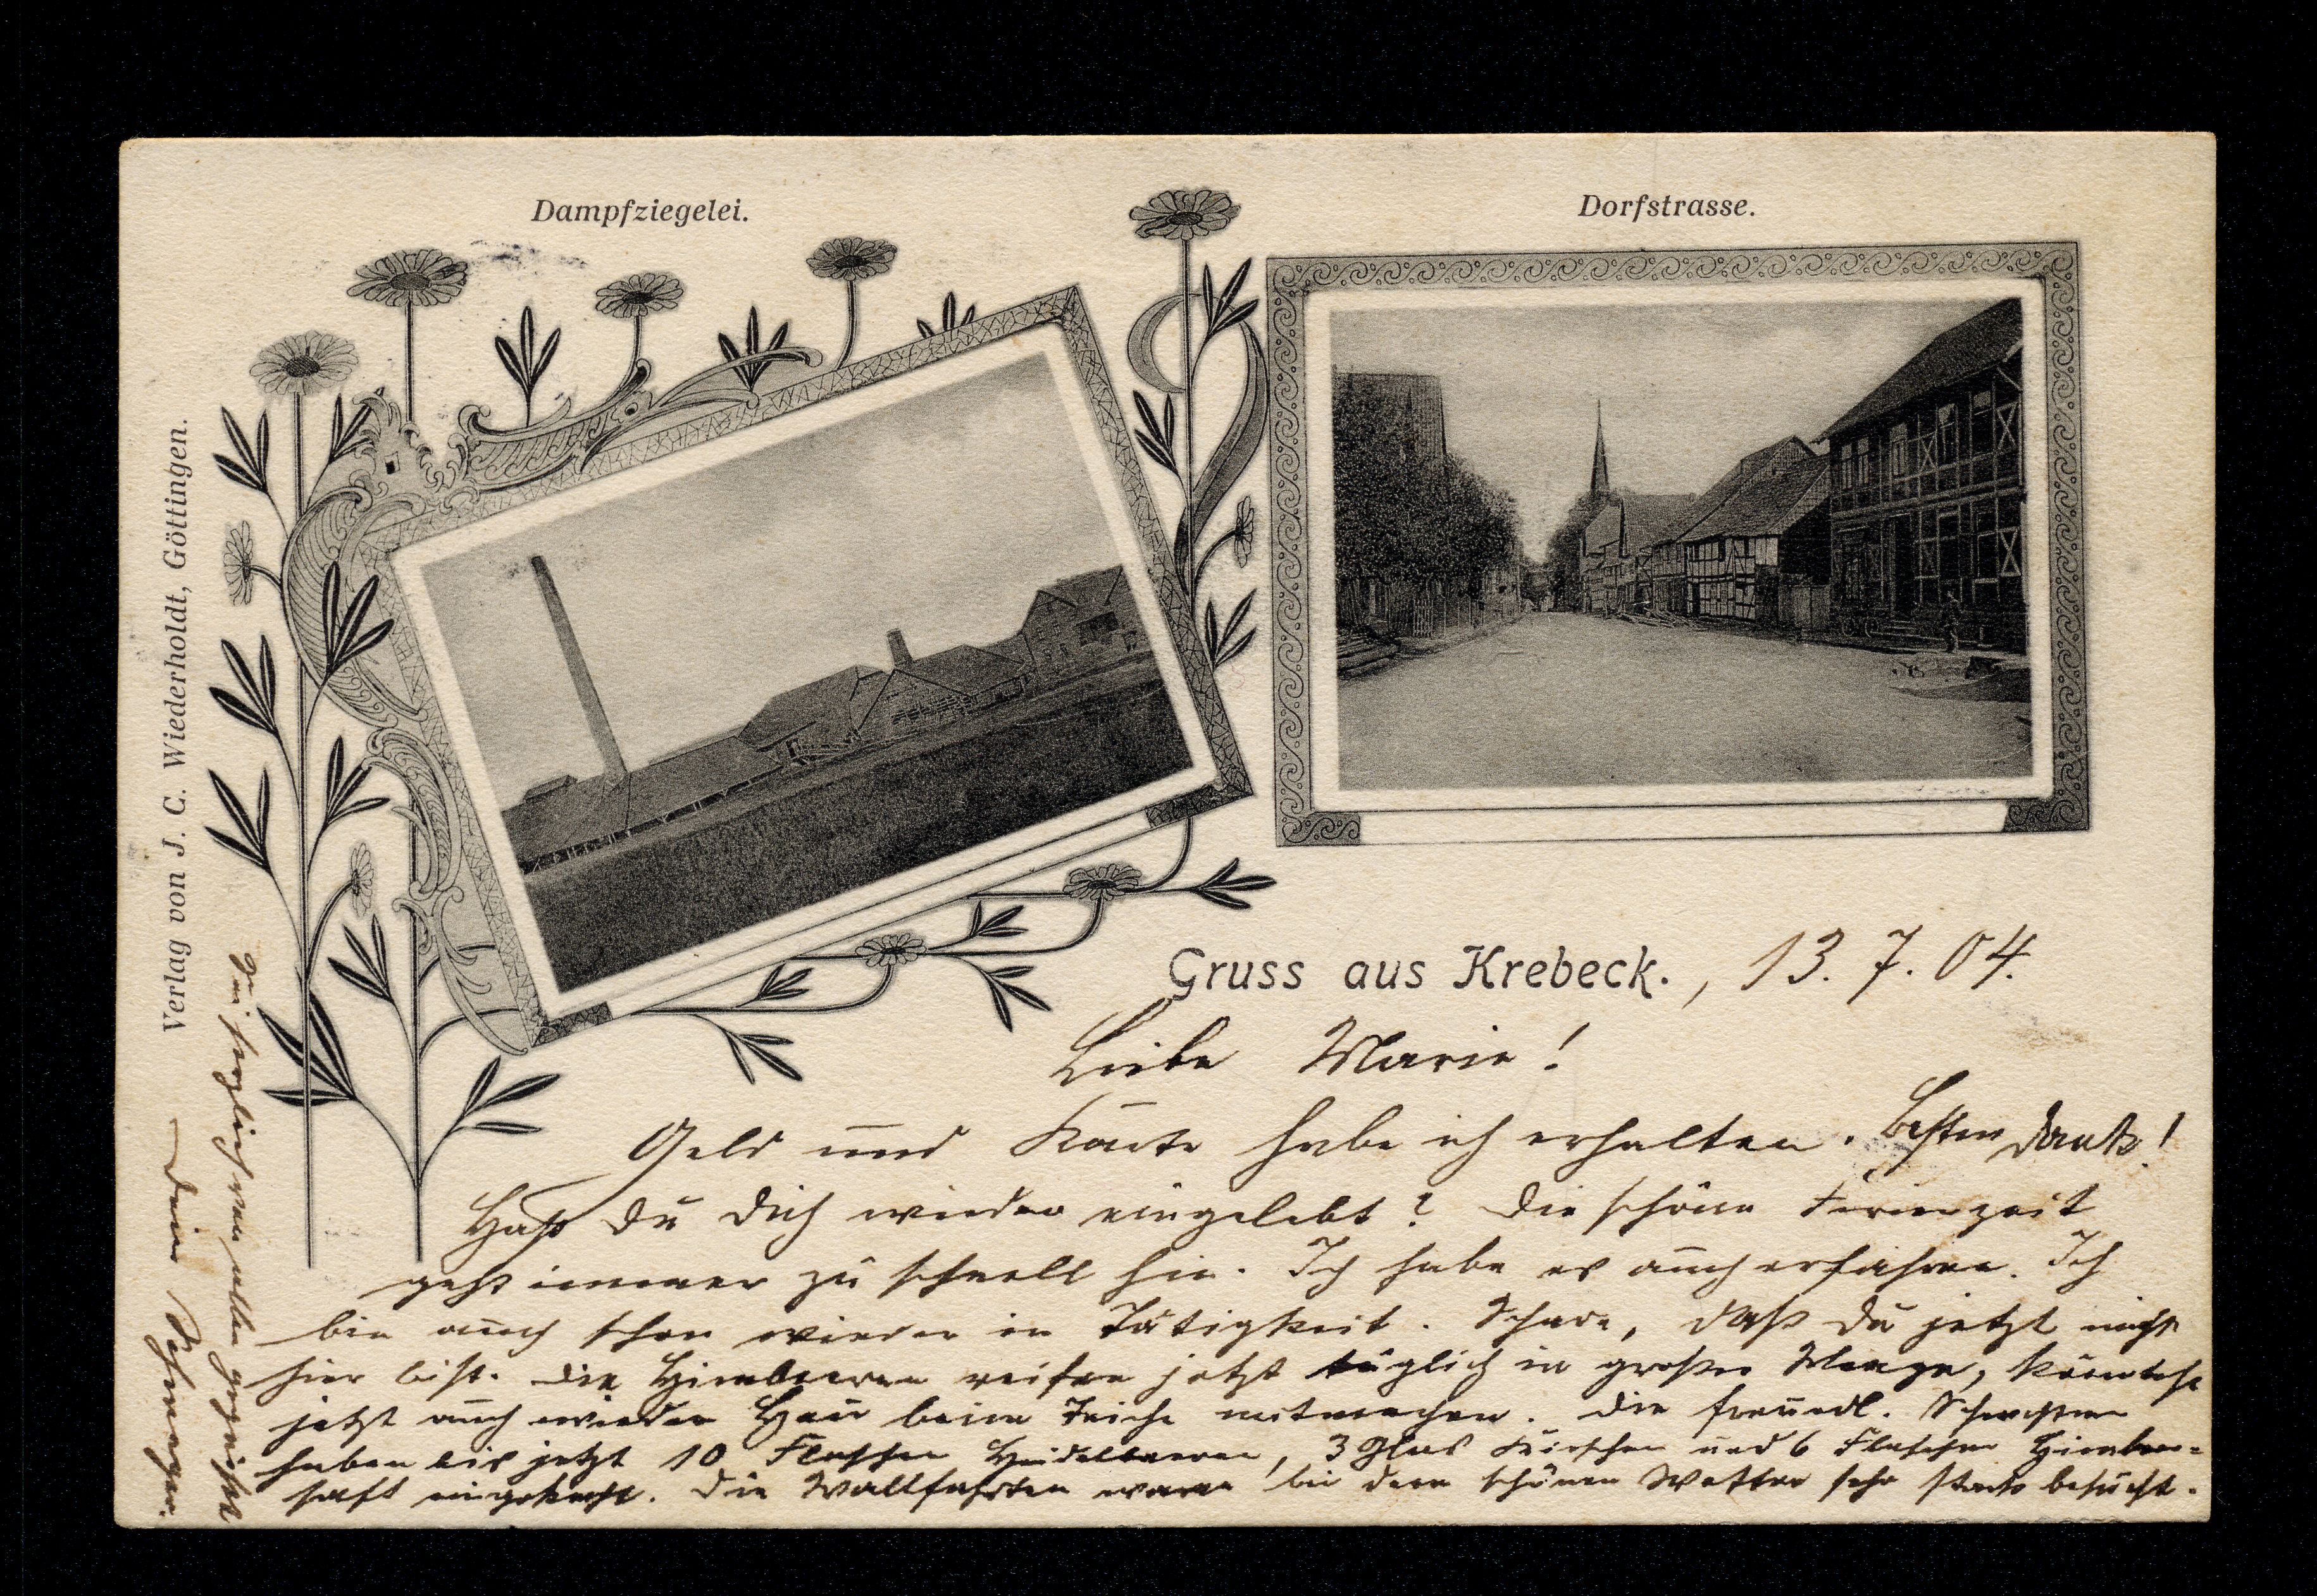 Dampfziegelei.
Dorfstrasse.
Verlag von J. C. Wiederholdt, Göttingen.
Gruss aus Krebeck. , 13. 7. 04.
Liebe Marie!
Geld und Karte habe ich erhalten. Besten Dank!
Hast Du Dich wieder eingelebt? Die schöne Ferienzeit
geht immer zu schnell hin. Ich habe es auch erfahren. Ich
bin auch schon wieder in Tätigkeit. Schade, daß Du jetzt nicht
hier bist. Die Himbeeren reifen jetzt täglich in großer Menge, könntest
jetzt auch wieder Heu beim Teiche mitmachen. Die freundl. Schwestern
haben bis jetzt 10 Flaschen Heidelbeeren, 3 Glas Kirschen und 6 Flaschen Himbeer=
saft eingekocht. Die Wallfahrten waren bei dem schönen Wetter sehr stark besucht.
Sei herzlich von allen gegrüßt
Deine